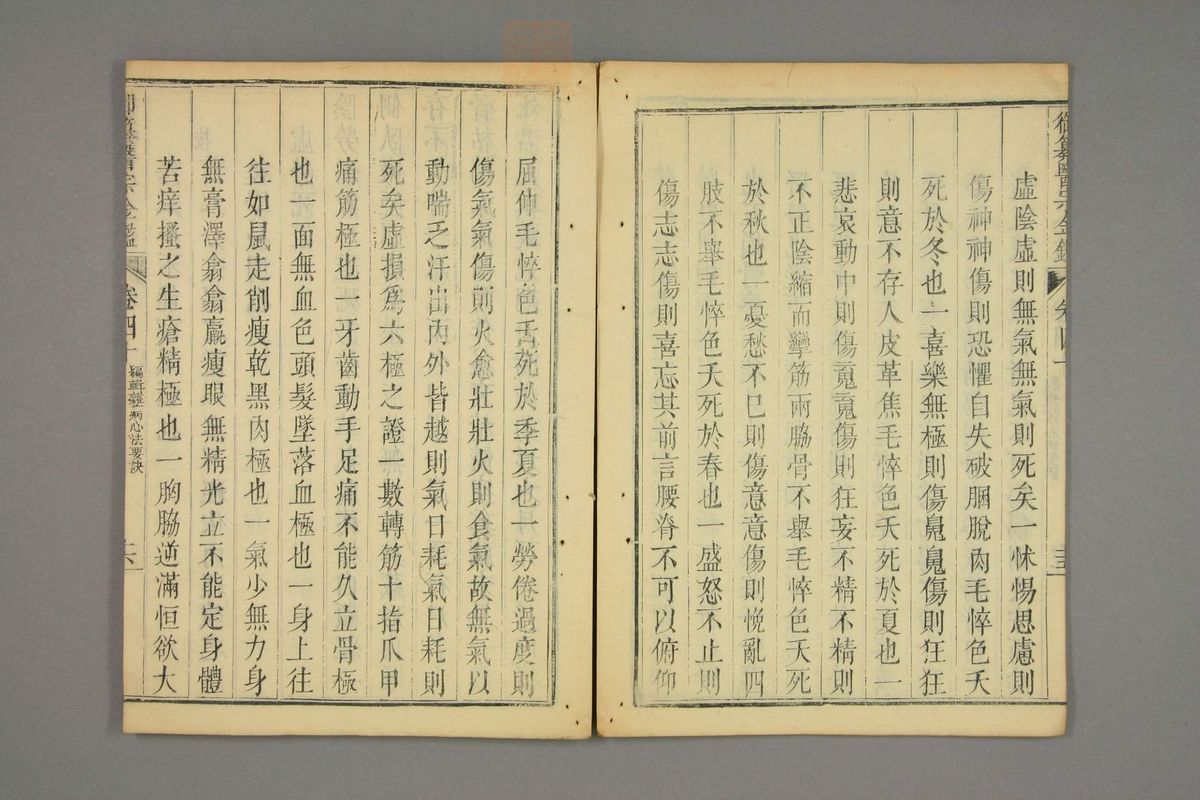 御纂醫宗金鑑
卷四十
虛陰虛則無氣無氣則死矣一怵惕思慮則
傷神神傷則恐懼自失破䐃脫肉毛悴色夭
死於冬也一喜樂無極則傷魄魄傷則狂狂
則意不存人皮革焦毛悴色夭死於夏也一
悲哀動中則傷䰟䰟傷則狂妄不精不精則
不正陰縮而攣筋兩脇骨不舉毛悴色夭死
於秋也一憂愁不已則傷意意傷則悗亂四
肢不舉毛悴色夭死於春也一盛怒不止則
傷志志傷則喜忘其前言腰脊不可以俯仰
屈伸毛悴色夭死於季夏也一勞倦過度則
傷氣氣傷則火愈壯壯火則食氣故無氣以
動喘乏汗出內外皆越則氣日耗氣日耗則
死矣虛損為六極之證一數轉筋十指爪甲
痛筋極也一牙齒動手足痛不能久立骨極
也一面無血色頭髮墜落血極也一身上往
往如鼠走削瘦乾黑肉極也一氣少無力身
無膏澤翕翕羸瘦眼無精光立不能定身體
苦痒搔之生瘡精極也一胸脇逆滿恒欲大
御纂醫宗金鑑
卷四十
編輯雜病心法要訣
六